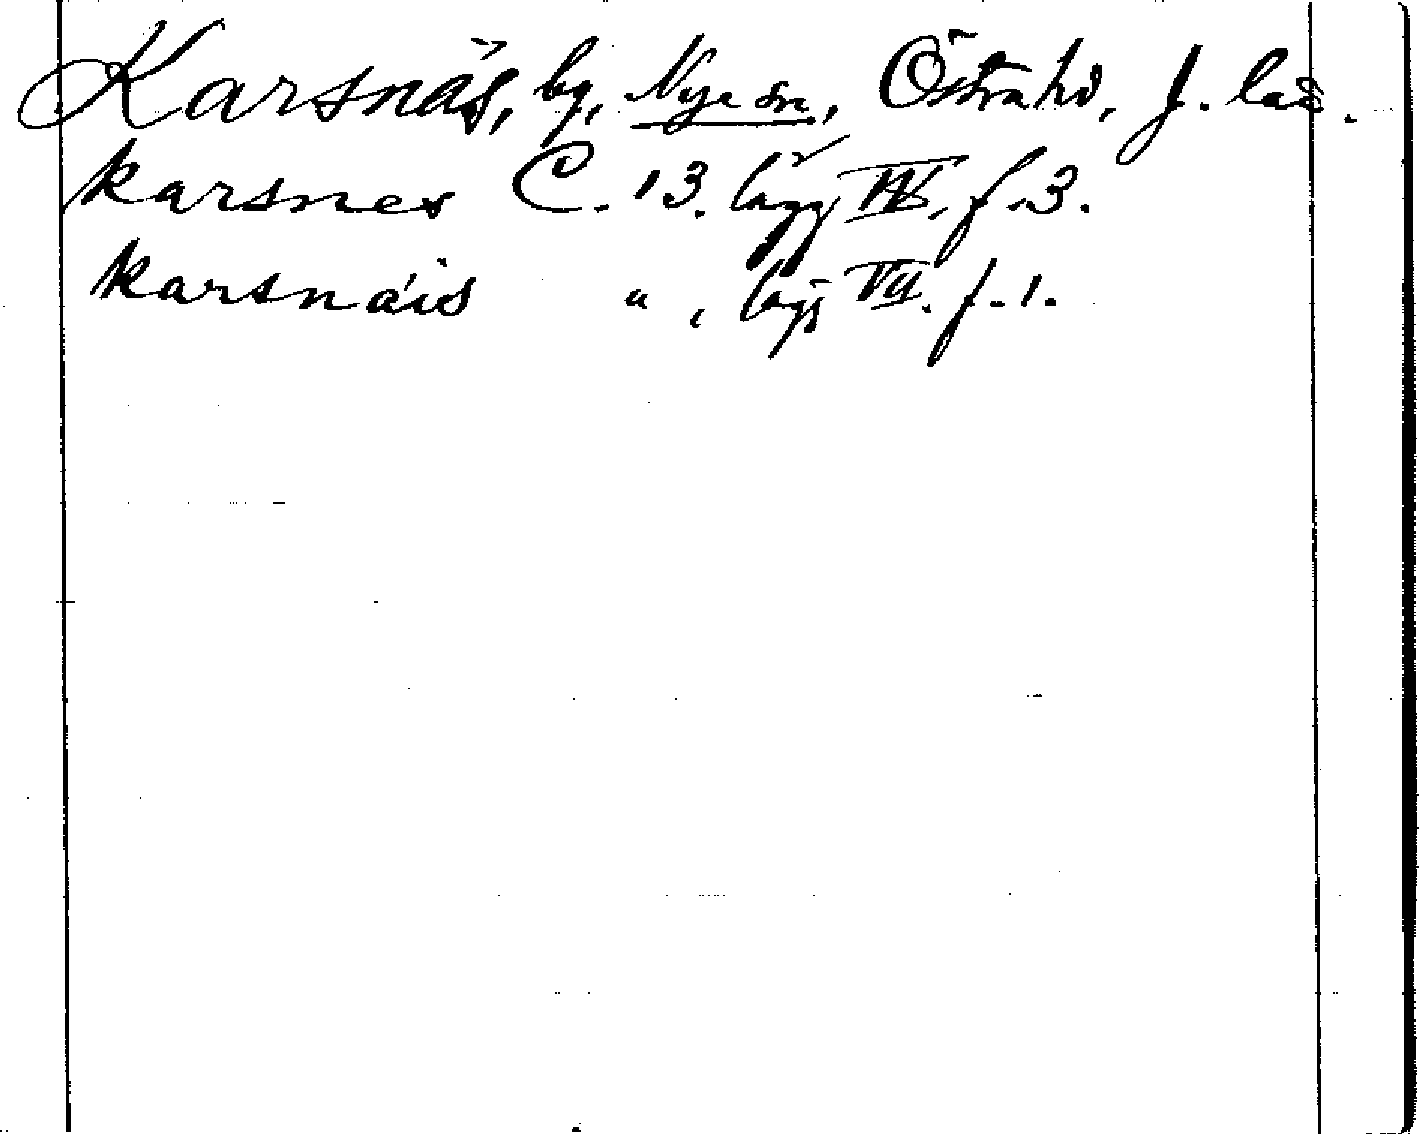 Karsnäs, by, Nye sn, Östra hd, J. län.
karsnes C. 13. lägg IV, f. 3.
karsnäis " , lägg VII. f. 1.